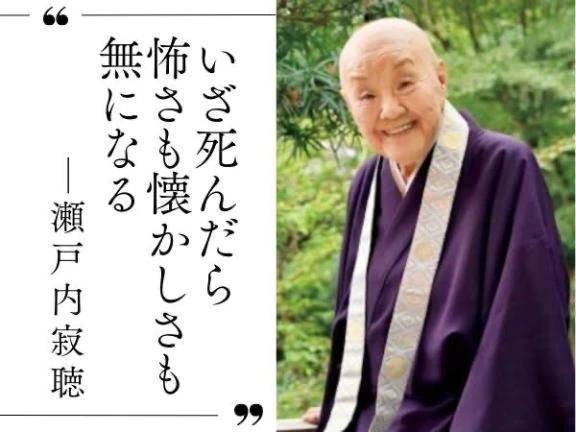 いざ死んだら
怖さも懐かしさも
無になる
—瀬戸内寂聴